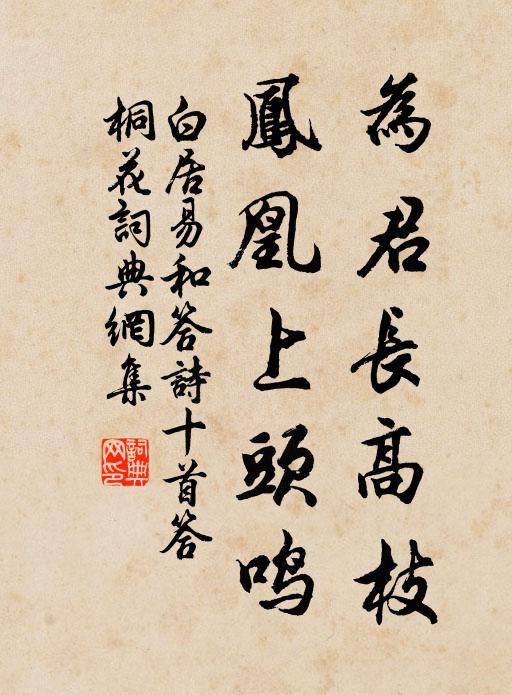 為君長高枝
鳳凰上頭鳴
白居易和答詩十首答
桐花詞典網集
詞典
网印